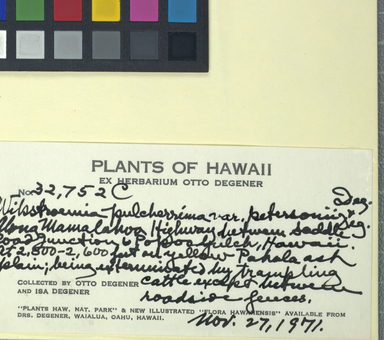 PLANTS OF HAWAII
EX HERBARIUM OTTO DEGENER
No. 32,752 C
Wikstroemia pulcherrima var. petersonii Deg. &
Along Mamalahoa Highway between Saddle Deg.
Road Junction & Popoo Gulch, Hawaii.
At 2,500-2,600 feet on yellow Pahala ash
plain; being exterminated by trampling
cattle except between
COLLECTED BY OTTO DEGENER
AND ISA DEGENER
roadside fences.
"PLANTS HAW. NAT. PARK" & NEW ILLUSTRATED "FLORA HAWAIIENSIS" AVAILABLE FROM
DRS. DEGENER, WAIALUA, OAHU, HAWAII.
Nov. 27, 1971.